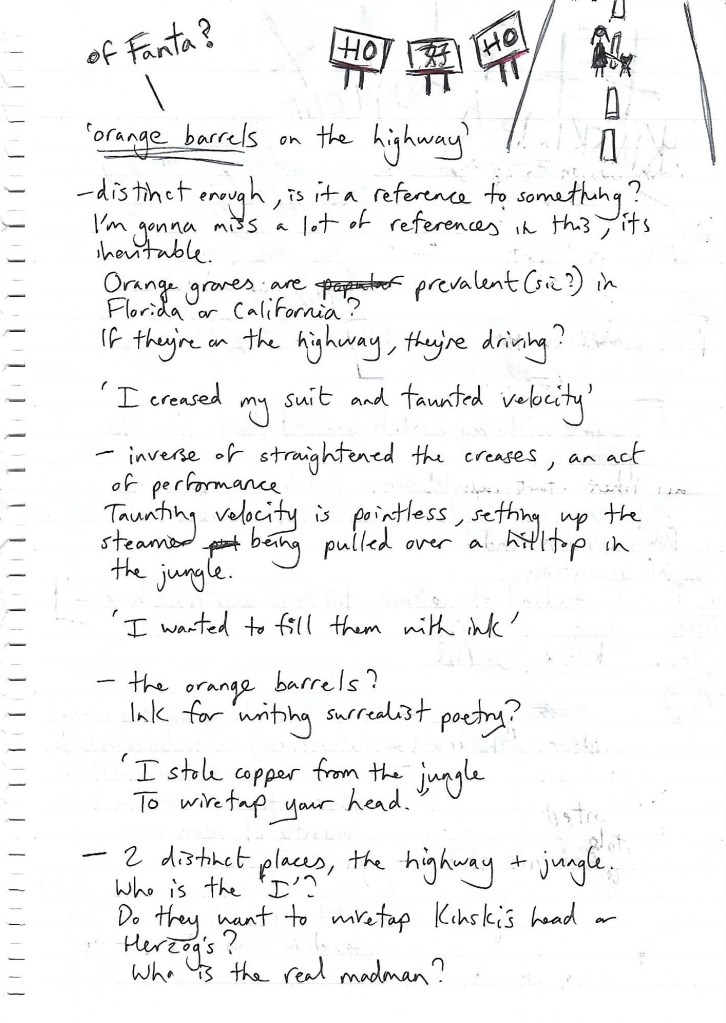 of Fanta?
HO
HO
'orange barrels on the highway'
- distinct enough, is it a reference to something?
I'm gonna miss a lot of references in this, its
inevitable.
Orange groves are popular prevalent (sic?) in
Florida or California?
If they're on the highway, they're driving?
'I creased my suit and taunted velocity'
- inverse of straightened the creases, an act
of performance
Taunting velocity is pointless, setting up the
steamer being pulled over a hilltop in
the jungle.
'I wanted to fill them with ink'
- the orange barrels?
Ink for writing surrealist poetry?
'I stole copper from the jungle
To wiretap your head.'
- 2 distinct places, the highway + jungle.
Who is the 'I'?
Do they want to wiretap Kinski's head or
Herzog's?
Who is the real madman?